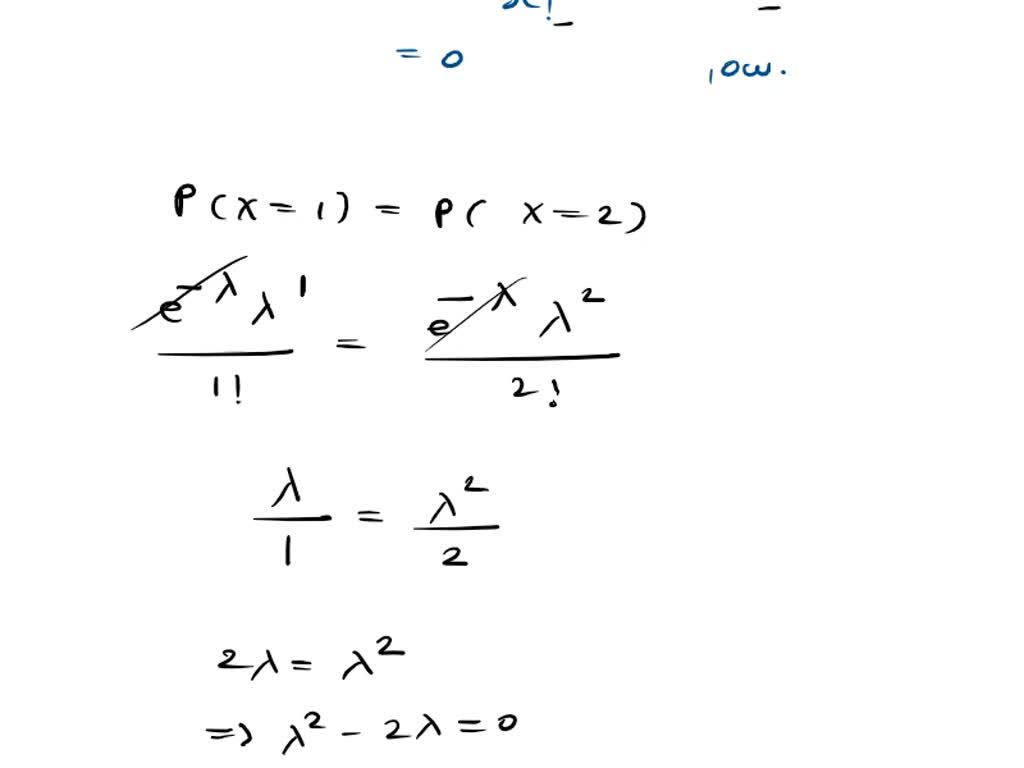 x!
= 0 , ow.
P(X = 1) = P( X = 2)
e^-λ λ^1 / 1! = e^-λ λ^2 / 2!
λ / 1 = λ^2 / 2
2λ = λ^2
=> λ^2 - 2λ = 0